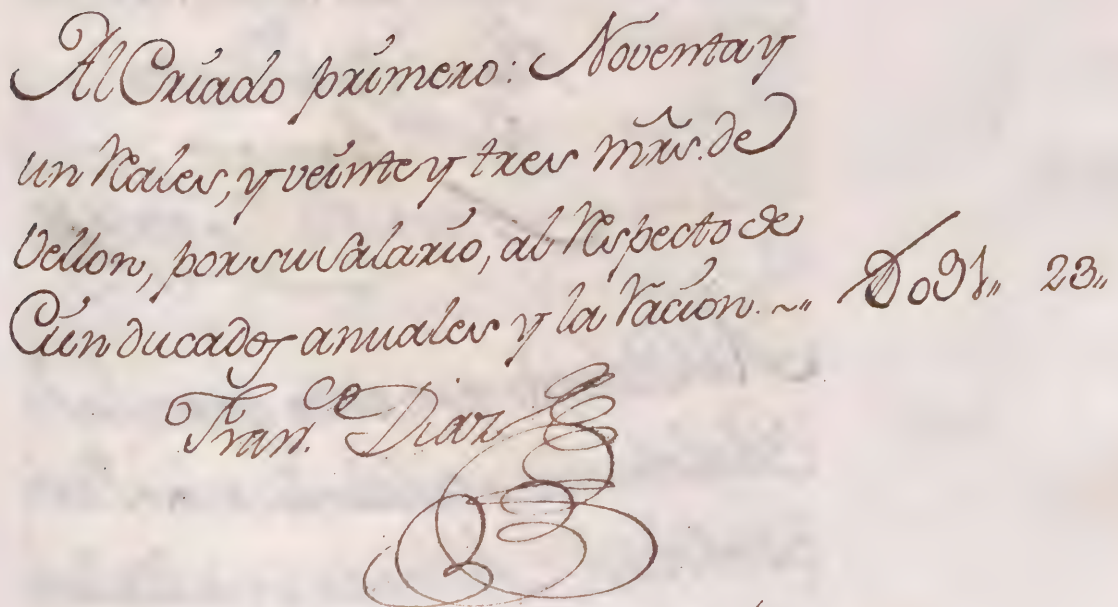 Al Criado primero: Noventa y
un Rales, y veinte y tres mrs. de
Vellon, por su Salario, al Respecto de
Cien ducados anuales y la Racion. ~,, Do91,, 23,,
Fran.co Diaz